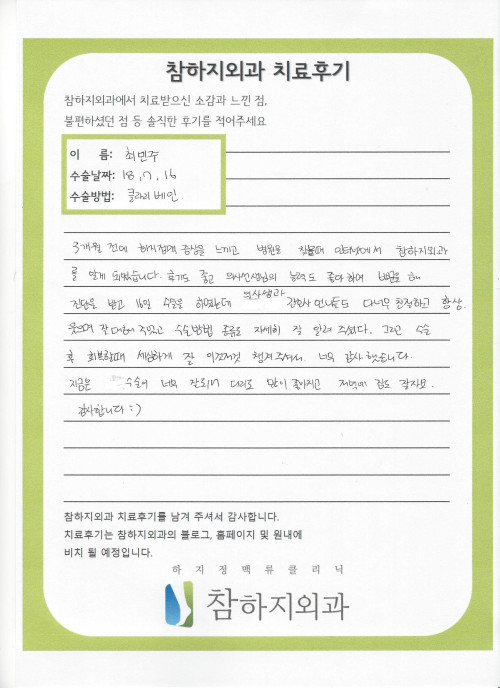 참하지외과 치료후기
참하지외과에서 치료받으신 소감과 느낀 점,
불편하셨던 점 등 솔직한 후기를 적어주세요
이 름: 최민주
수술날짜: 18, 7, 16
수술방법: 클라리베인
3개월 전에 하지정맥 증상을 느끼고 병원을 찾을때 인터넷에서 참하지외과
를 알게 되었습니다. 후기도 좋고 의사선생님의 능력도 좋다하여 방문을 해
진단을 받고 16일 수술을 하였는데 의사쌤과 간호사 언니들도 다너무 친절하고 항상
웃으며 잘 대해 주셨고 수술방법 종류도 자세히 잘 알려 주셨다. 그리고 수술
후 회복할때 세심하게 잘 이것저것 챙겨주셔서 너무 감사했습니다.
지금은 수술이 너무 잘되어 다리도 많이 좋아지고 저녁에 잠도 잘자요.
감사합니다 :)
참하지외과 치료후기를 남겨 주셔서 감사합니다.
치료후기는 참하지외과의 블로그, 홈페이지 및 원내에
비치 될 예정입니다.
하지정맥류클리닉
참하지외과